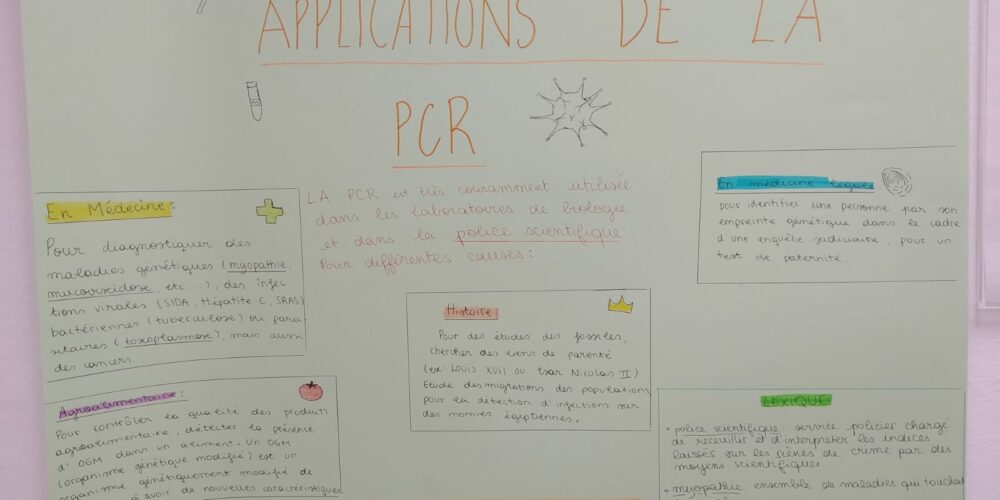 APPLICATIONS DE LA
PCR
LA PCR est très couramment utilisée
dans les laboratoires de biologie
et dans la police scientifique.
Pour différentes causes :
En Médecine :
Pour diagnostiquer des
maladies génétiques (myopathie,
mucoviscidose, etc...), des infec-
tions virales (SIDA, Hépatite C, SRAS)
bactériennes (tuberculose) ou para
sitaires (toxoplasmose), mais aussi
des cancers.
En médecine légale
pour identifier une personne par son
empreinte génétique dans le cadre
d'une enquête judiciaire, pour un
test de paternité.
Histoire :
Pour des études des fossiles,
chercher des liens de parenté
(ex: Louis XVII ou tsar Nicolas II)
Etude des migrations des populations,
pour la détection d'infections sur
des momies égyptiennes.
Agroalimentaire :
Pour contrôler la qualité des produits
agroalimentaire, détecter la présence
d'OGM dans un aliment. Un OGM
(organisme génétique modifié) est un
organisme génétiquement modifié de
avoir de nouvelles caractéristiques
LEXIQUE
• police scientifique : service policier chargé
de receuillir et d'interpreter les indices
laissés sur les scènes de crime par des
moyens scientifiques.
• myopathie : ensemble de maladies qui touchent